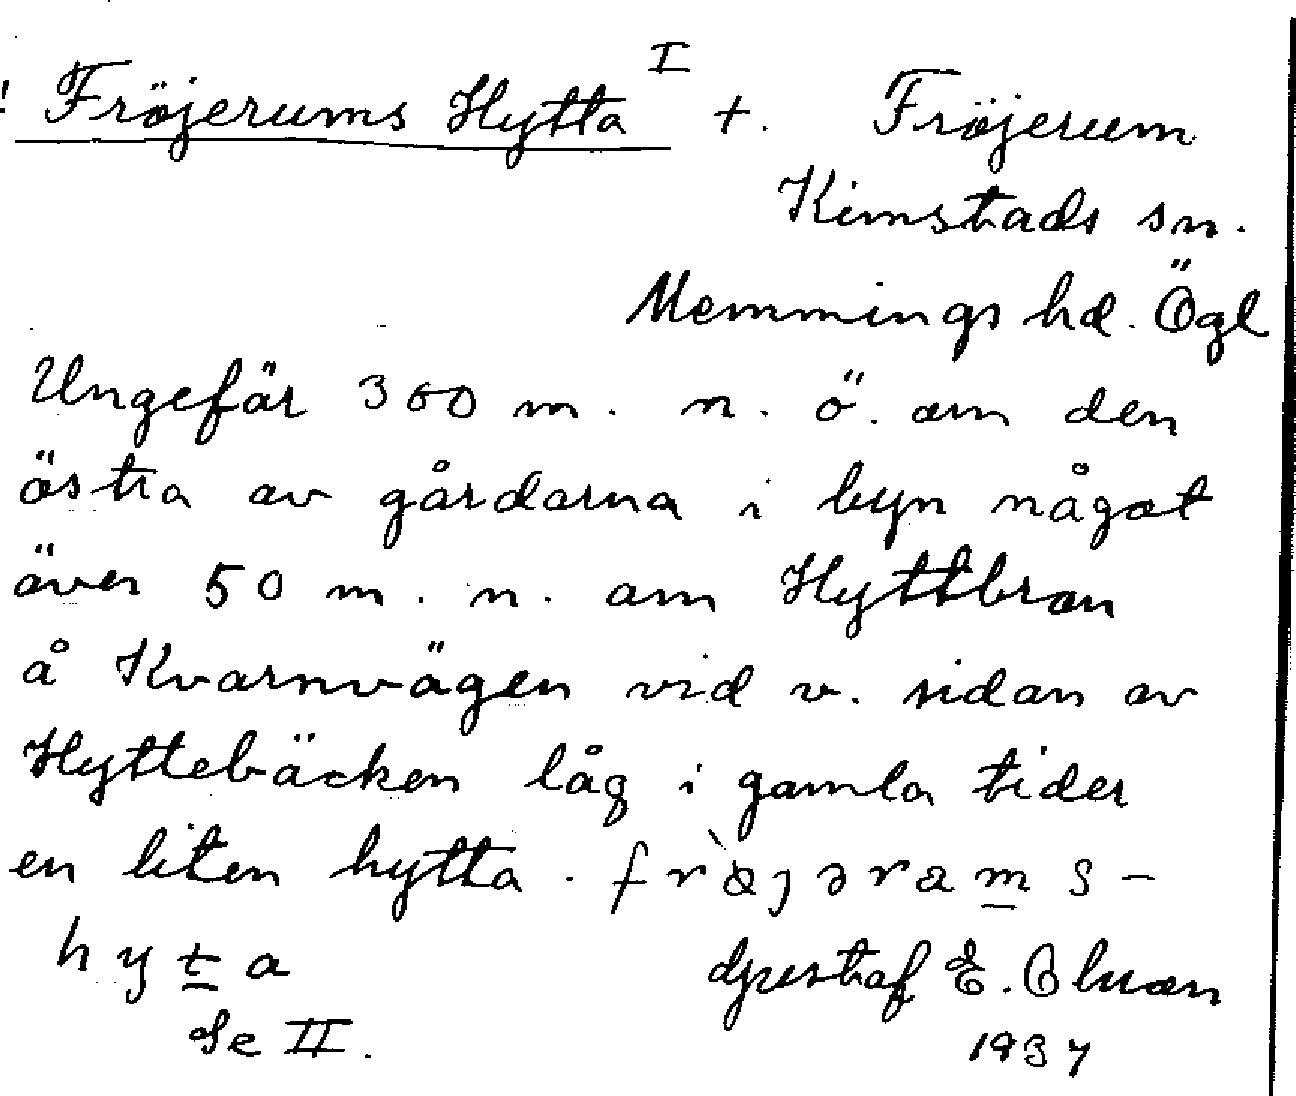 ! Fröjerums Hytta I +. Fröjerum
Kimstads sn.
Memmings hd. Ögl
Ungefär 300 m. n. ö. om den
östra av gårdarna i byn något
över 50 m. n. om Hyttbron
å Kvarnvägen vid v. sidan av
Hyttebäcken låg i gamla tider
en liten hytta. frö̀jərams-
hyta
Se II.
Gustaf E. Olson
1937